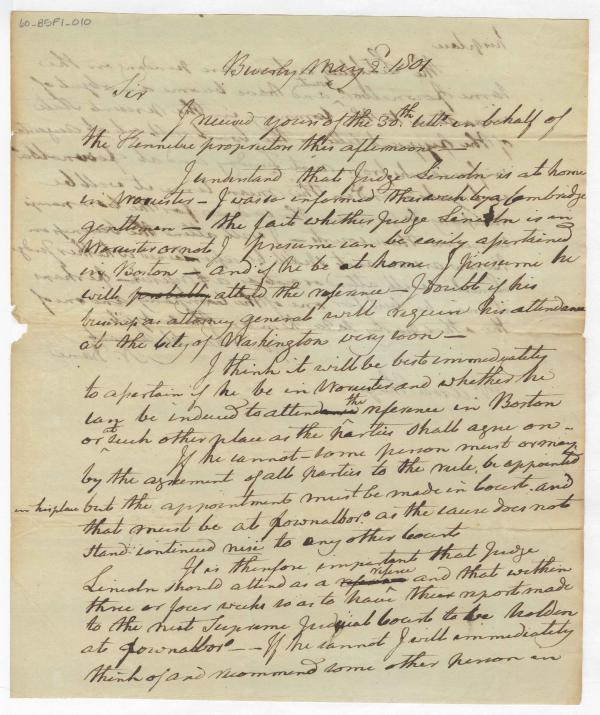 60-85F1-010
Beverly May 2d. 1801
Sir
I received yours of the 30th. ulto. in behalf of
the Kennebec proprietors this afternoon
I understand that Judge Lincoln is at home
in Worcester – I was so informed this week by a Cambridge
gentleman – the fact whether Judge Lincoln is in
Worcester or not I presume can be easily ascertained
in Boston – and if he be at home I presume he
will probably attend the reference – I doubt if his
business as attorney general will require his attendance
at the city of Washington very soon –
I think it will be best immediately
to ascertain if he be in Worcester and whether he
can be induced to attendance the reference in Boston
or at such other place as the parties shall agree on –
If he cannot – some person must or may
by the agreement of all parties to the rule, be appointed
in his place but the appointment must be made in Court and
that must be at Pownalboro. as the cause does not
stand continued nisi to any other Court
It is therefore important that Judge
Lincoln should attend as a referee and that within
three or four weeks so as to have their report made
to the next Supreme Judicial Court to be holden
at Pownalboro. – If he cannot I will immediately
think of and recommend some other person in